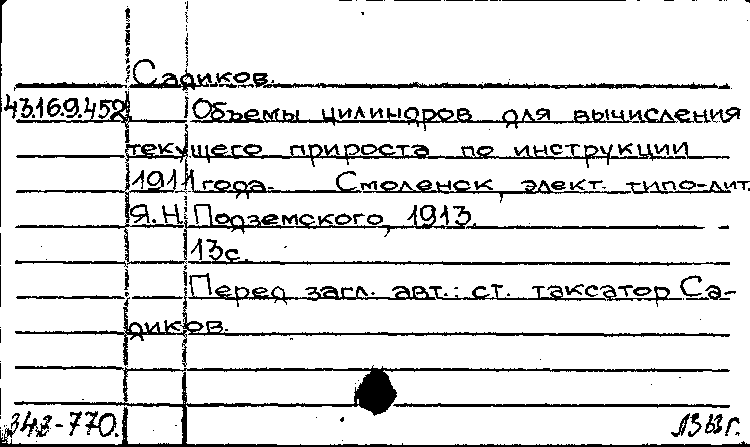 Садиков.
43.16.9.452. Объемы цилиндров для вычисления
текущего прироста по инструкции
1911 года. Смоленск, элект. типо-лит.
Я.Н. Подземского, 1913.
13с.
Перед загл. авт.: ст. таксатор Са-
диков.
348-770.